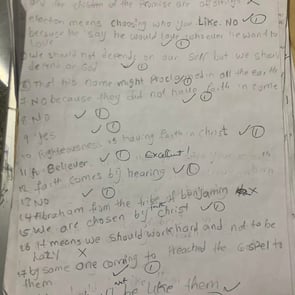 and her children of the Promise are offsprings
election means choosing who you Like. NO 1
because he say he would love whoever he want to
Love 1
We should not depends on our Self but we should
depend on God 1
6 that his name might Proclaimed in all the earth 1
7 NO because they did not have faith in
8 NO 1
9 Yes 1
10 Righteousness is having Faith in Christ 1
11 A Believer 1 Excellent!
12 Faith comes by hearing 1
13 NO 1
14 Abraham from the tribe of benjamin X
15 We are chosen by Christ 1
16 It means we should work hard and not to be
lazy X
17 by some one coming to Preached the Gospel to
them 1
be like them